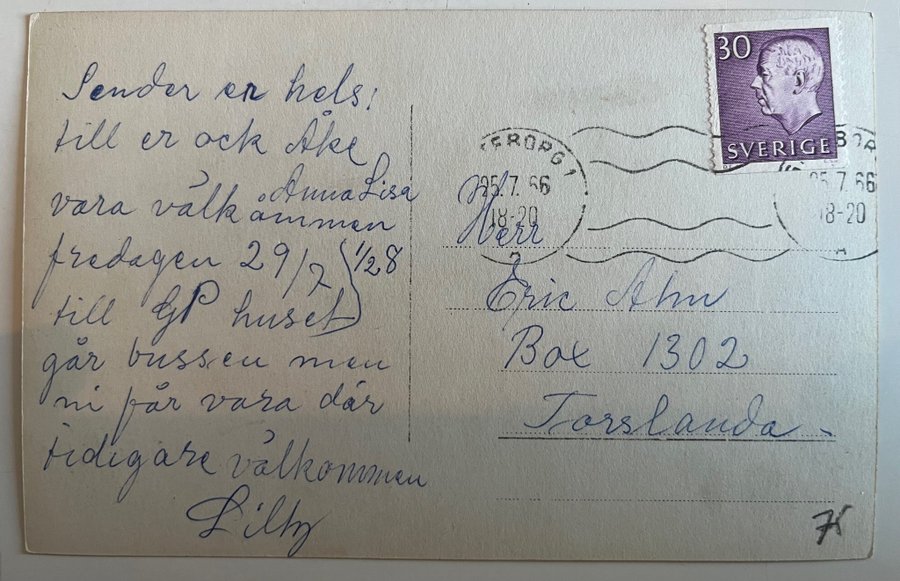 Sender er hels:
till er ock Åke
Anna Lisa
vara välkommen
fredagen 29/7 1/28
till GP huset
går bussen men
ni får vara där
tidigare välkommen
Lilly
30
SVERIGE
TEBORG 1
25.7.66
18-20
A
BORG
25 7 66
18-20
A
Herr
Eric Ahn
Box 1302
Torslanda